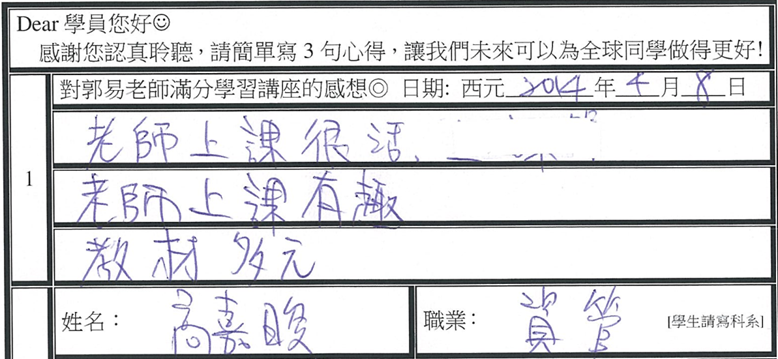 Dear 學員您好☺
感謝您認真聆聽，請簡單寫 3 句心得，讓我們未來可以為全球同學做得更好!
對郭易老師滿分學習講座的感想◎ 日期: 西元 2014 年 4 月 8 日
1
老師上課很活
老師上課有趣
教材多元
姓名： 高嘉駿
職業： 資管 [學生請寫科系]